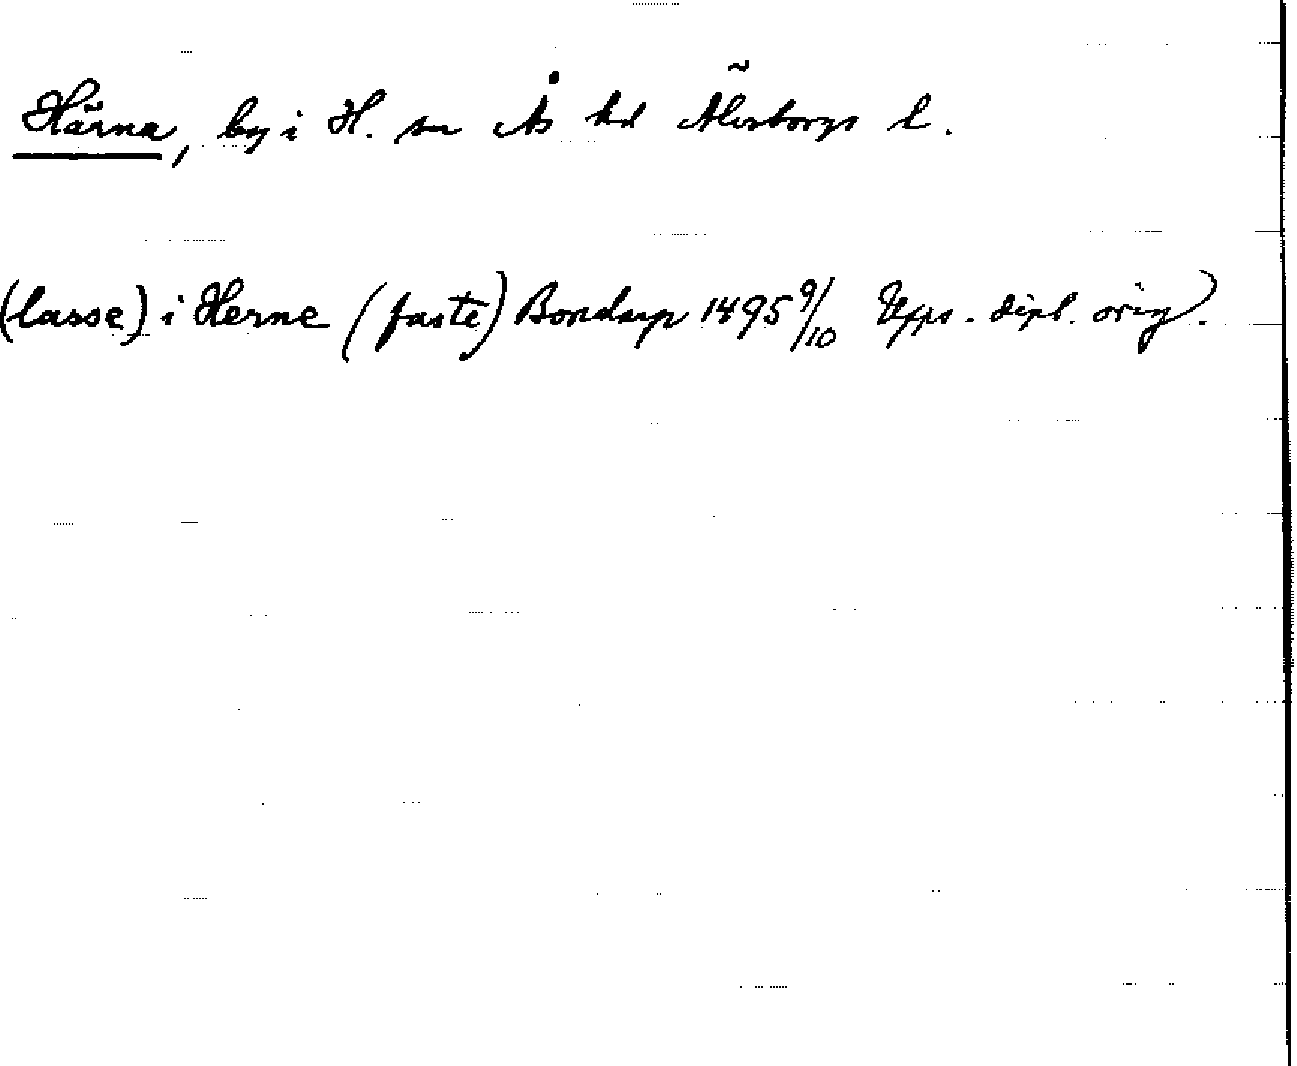 Härna, by i H. sn Ås hd Älvsborgs l.
(lasse) i Herne (faste) Bondarp 1495 9/10 Upps. dipl. orig).